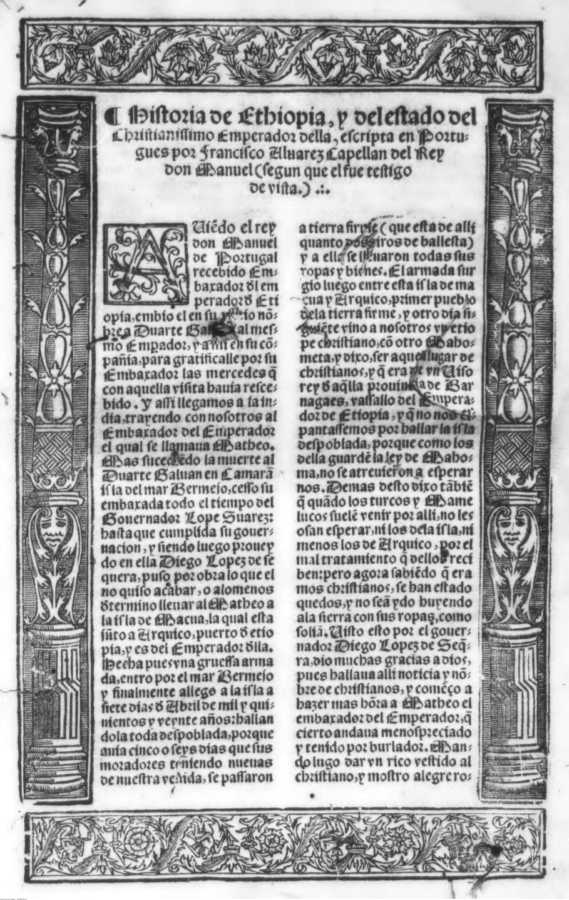 ¶ Historia de Ethiopia, y del estado del
Christianissimo Emperador della, escripta en Portu-
gues por Francisco Alvarez Capellan del Rey
don Manuel (segun que el fue testigo
de vista.) .:.
AUiẽdo el rey
don Manuel
de Portugal
recebido Em-
baxador dl em
perador đ Eti
opia, embio el en su nõ-
bre a Duarte Galuan al mes-
mo Emperador, y assi en su cõ-
pañia, para gratificalle por su
Embaxador las mercedes q̃
con aquella visita hauia resce-
bido. Y assi llegamos a la in-
dia, trayendo con nosotros al
Embaxador del Emperador
el qual se llamaua Matheo.
Mas sucediendo la muerte al
Duarte Galuan en Camarã
isla del mar Bermejo, cesso su
embaxada todo el tiempo del
Gouernador Lope Suarez:
hasta que cumplida su gouer-
nacion, y siendo luego prouey
do en ella Diego Lopez de se
quera, puso por obra lo que el
no quiso acabar, o alomenos
đtermino lleuar al Matheo a
la isla de Macua, la qual esta
jũto a Arquico, puerto đ etio
pia, y es del Emperador đlla.
Hecha pues vna gruessa arma
da, entro por el mar Bermejo
y finalmente allego a la isla a
siete dias đ Abril de mil y qui-
nientos y veynte años: hallan
dola toda despoblada, porque
auia cinco o seys dias que sus
moradores teniendo nueuas
de nuestra venida, se passaron
a tierra firme ( que esta de alli
quanto dos tiros de ballesta)
y a ella se lleuaron todas sus
ropas y bienes. El armada sur
gio luego entre esta isla de ma
çua y Arquico, primer pueblo
dela tierra firme, y otro dia si-
guiẽte vino a nosotros vn etio
pe christiano, cõ otro Maho-
meta, y dixo, ser aquel lugar de
christianos, y q̃ era de vn Uiso
rey đ aq̃lla prouincia de Bar-
nagaes, vassallo del Empera-
dor de Etiopia, y q̃ no nos es
pantassemos por hallar la isla
despoblada, porque como los
della guardẽ la ley de Maho-
ma, no se atreuieron a esperar
nos. Demas desto dixo tãbiẽ
q̃ quãdo los turcos y Mame
lucos suelẽ venir por alli, no les
osan esperar, ni los dela isla, ni
menos los de Arquico, por el
mal tratamiento q̃ dellos reci
ben: pero agora sabiẽdo q̃ era
mos christianos, se han estado
quedos, y no seã ydo huyendo
ala sierra con sus ropas, como
soliã. Uisto esto por el gouer-
nador Diego Lopez de Seq̃-
ra, dio muchas gracias a dios,
pues hallaua alli noticia y nõ-
bre de christianos, y comẽço a
hazer mas hõra a Matheo el
embaxador del Emperador, q̃
cierto andaua menospreciado
y tenido por burlador. Man-
do lugo dar vn rico vestido al
christiano, y mostro alegre ro-